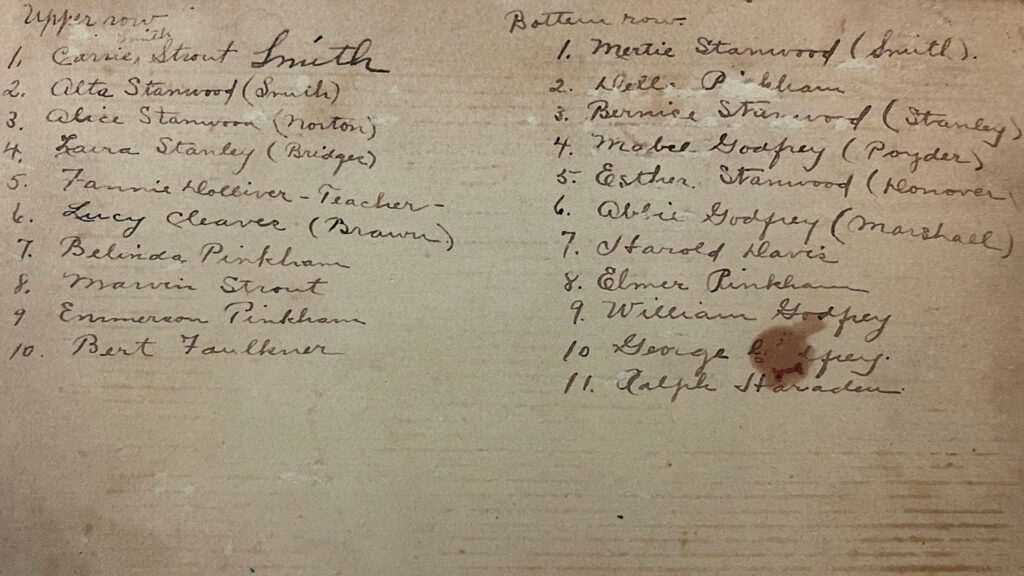 Upper row
Smith
1. Carrie, Strout Smith
2. Alta Stanwood (Smith)
3. Alice Stanwood (Norton)
4. Zaira Stanley (Bridges)
5. Fannie Holliver - Teacher -
6. Lucy Cleaves (Brawn)
7. Belinda Pinkham
8. Marvin Strout
9 Emmerson Pinkham
10. Bert Faulkner
Bottom row
1. Mertie Stanwood (Smith).
2. Pinkham
3. Bernice Stanwood (Stanley)
4. Mabel Godfrey (Poyder)
5. Esther. Stanwood (Donover
6. Abbie Godfrey (Marshall)
7. Harold Davis
8. Elmer Pinkham
9. William Godfrey
10 George Godfrey.
11. Ralph Haraden.